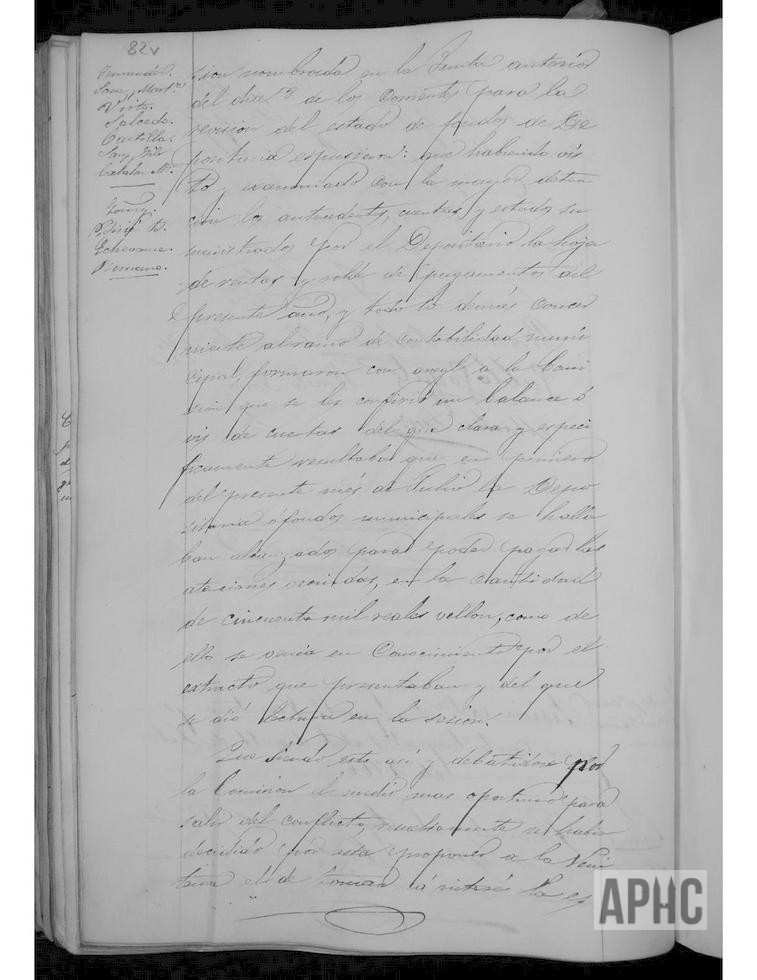 82v
Fernandez.
Sanz, Mart.z
Virto.
Salcedo.
Castilla.
Saez, Gil
Catalan M.
Echevarria.
Romano.
sion nombrada en la Junta anterior
del dia 3 de los Corrientes para la
revision del estado de fondos de De
positaria espusieron: que habiendo vis
to y examinado con la mayor deten
cion los antecedentes, cuentas y estados su
ministrados por el Depositario la hoja
de rentas y rolde de pagamentos del
presente año, y todo lo demás concer
niente al ramo de contabilidad muni
cipal, formaron con arreglo a la Comi
sion que se les confirió un balance ó
vis de cuentas del que clara y especi
ficamente resultaba que en primero
del presente mes de Julio la Depo
sitaria ó fondos municipales se halla
ban alcanzados para poder pagar las
atenciones vencidas, en la Cantidad
de cincuenta mil reales vellon, como de
ello se venia en Conocimiento por el
extracto que presentaban y del que
se dió lectura en la sesion.
Que siendo esto así y debatidose por
la Comision el medio mas oportuno para
salir del conflicto, resueltamente se habia
decidido por esta proponer a la Vein
tena el de tomar á interés la es
APHC